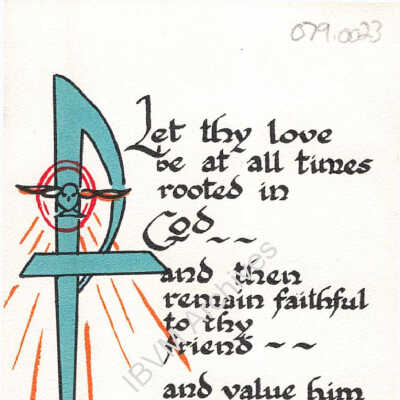 079.0023
Let thy love
be at all times
rooted in
God ~ ~
and then
remain faithful
to thy
friend ~ ~
and value him
IBVM Archives